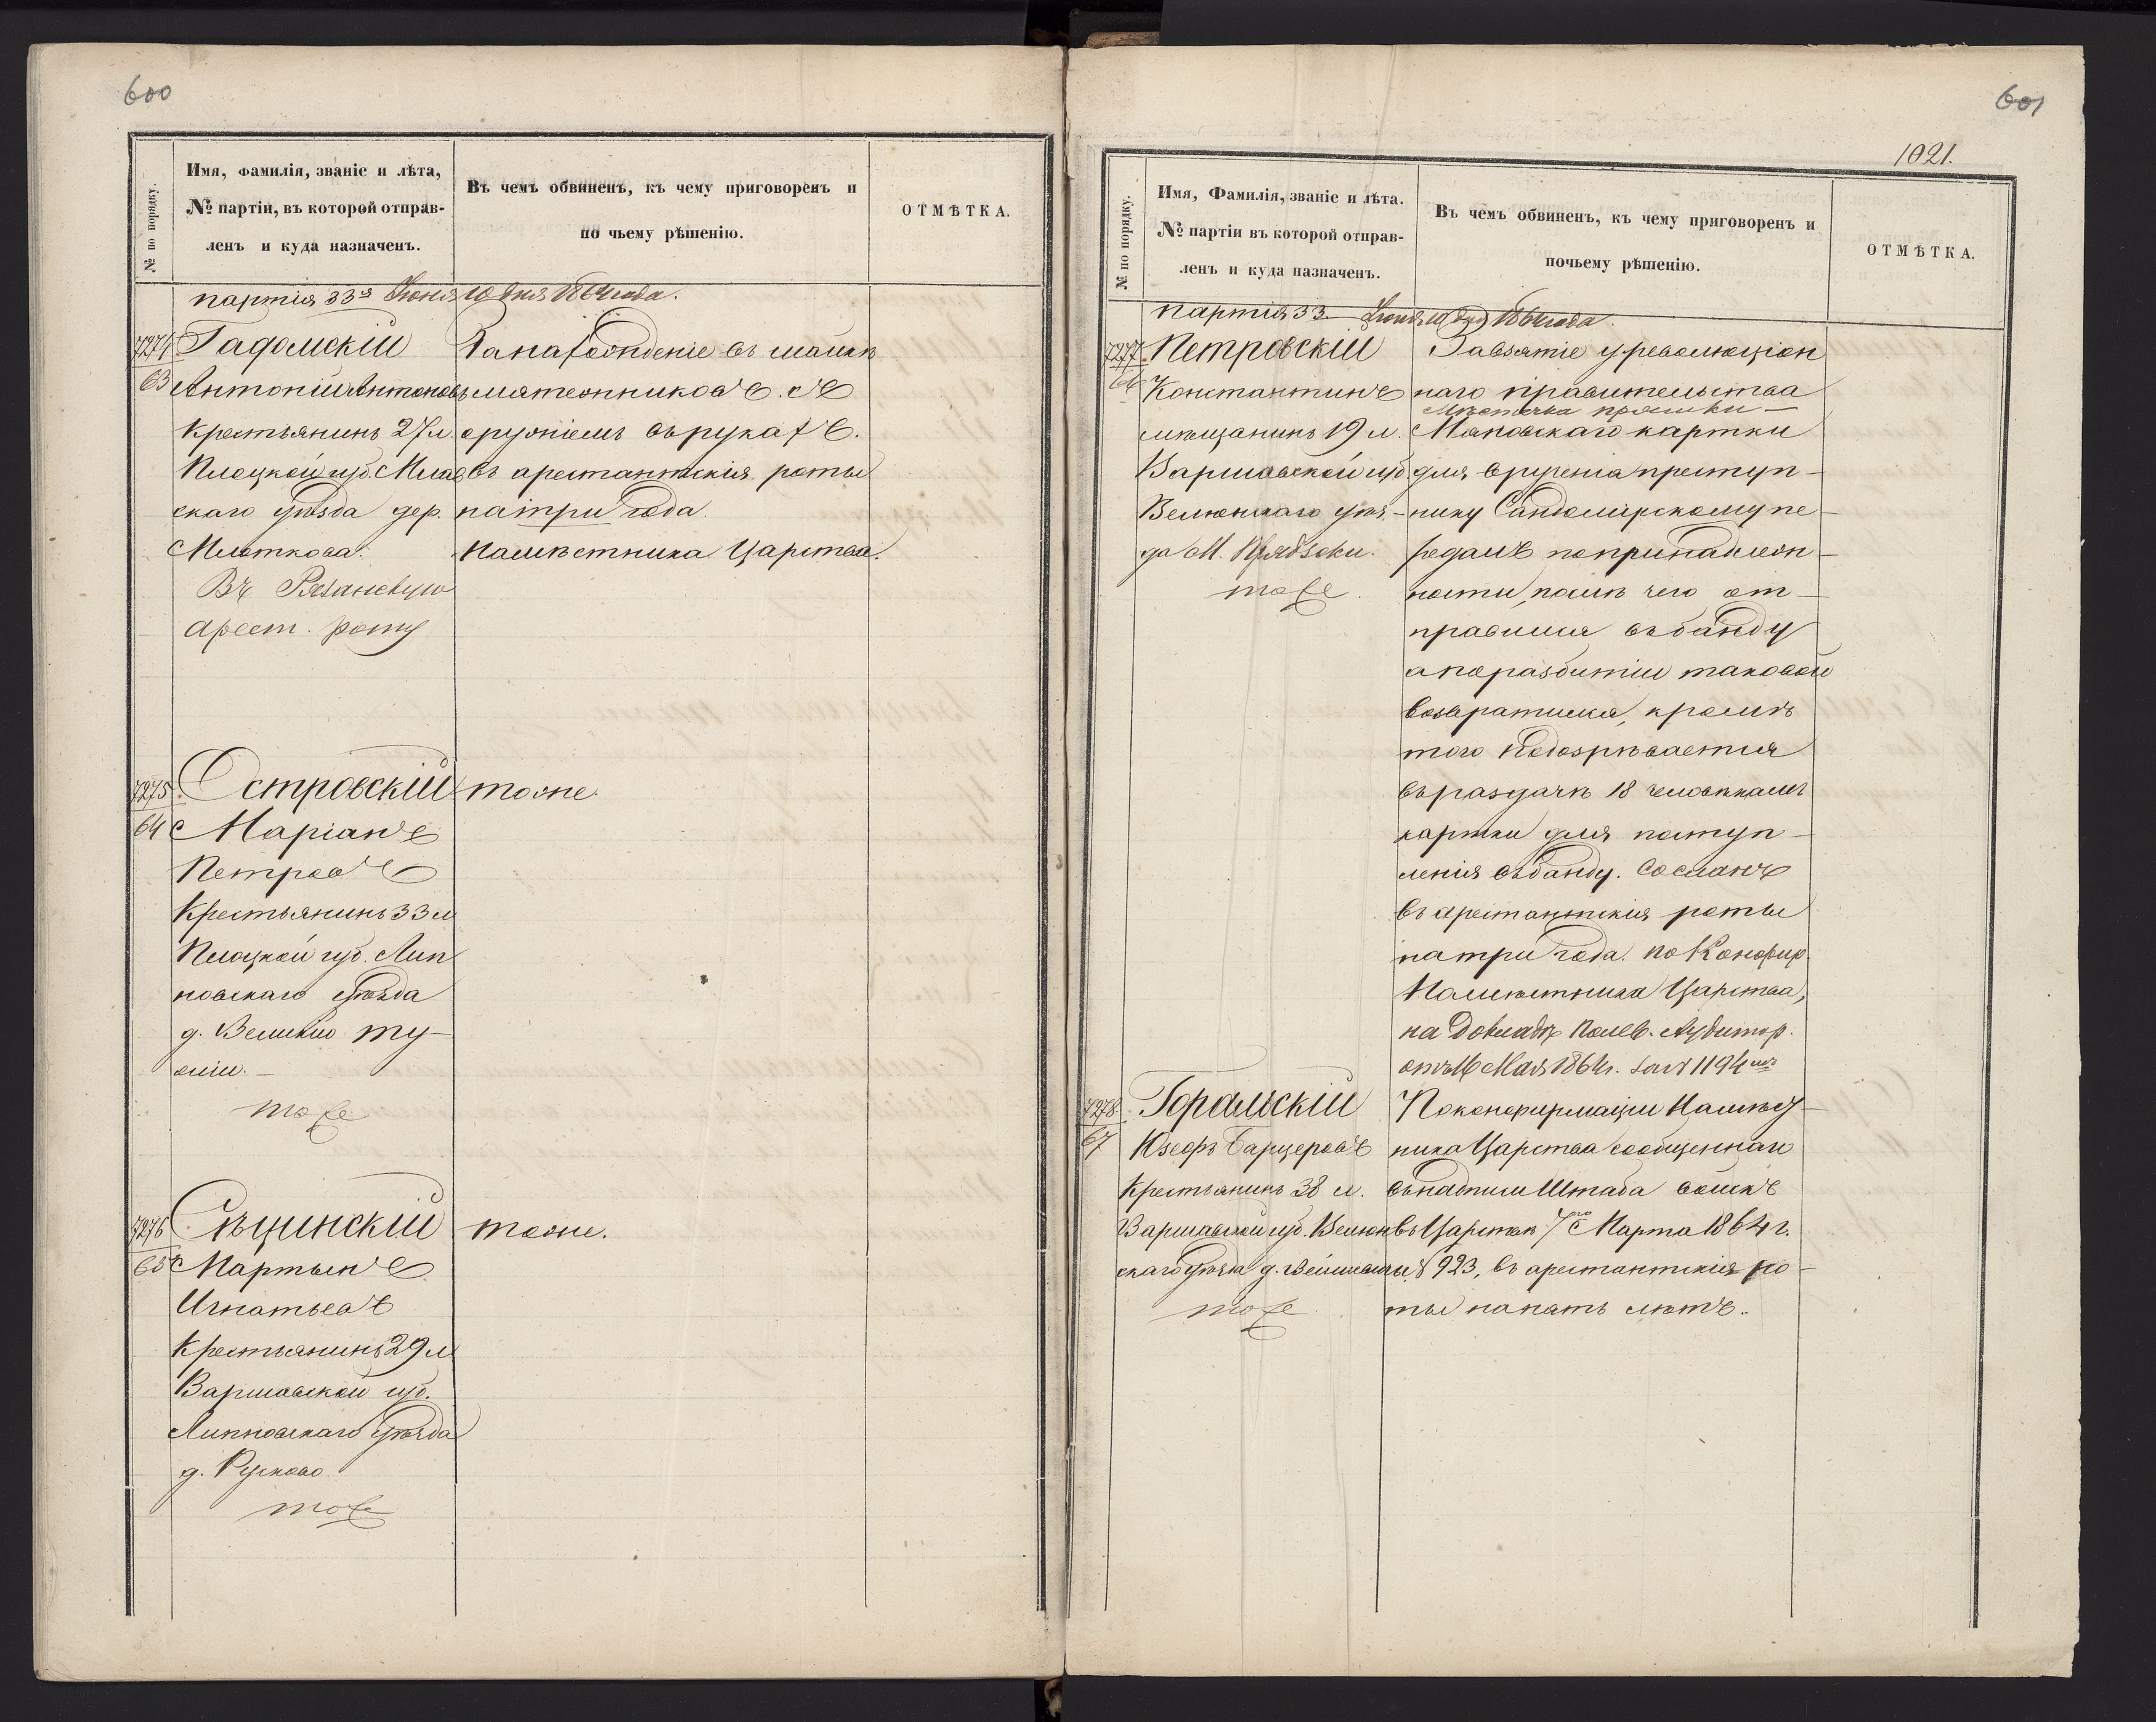 600
№ по порядку.
Имя, фамилія, званіе и лѣта,
№ партіи, въ которой отправ-
ленъ и куда назначенъ.
Въ чемъ обвиненъ, къ чему приговоренъ и
по чьему рѣшенію.
ОТМѢТКА.
партія 33я Іюня 10 дня 1864 года.
7274
63
Гадомскій
Антоній Антоновъ
крестьянинъ 27 л.
Плоцкой губ. Млав
скаго уѣзда дер.
Въ Рязанскую
Арест. роту
За нахожденіе въ шайкѣ
мятежниковъ съ
оружіемъ въ рукахъ.
въ арестантскія роты
на три года
Намѣстника Царства.
7275
64
Островскій
Маріанъ
Петровъ
Крестьянинъ 33 л
Плоцкой губ. Лип
новскаго уѣзда
тоже
тоже.
7276
65
Мартынъ
Игнатьевъ
Крестьянинъ 29 л
Варшавской губ.
Липновскаго уѣзда
д. Русково
тоже
тоже.
601
1021.
№ по порядку.
Имя, Фамилія, званіе и лѣта.
№ партіи въ которой отправ-
ленъ и куда назначенъ.
Въ чемъ обвиненъ, къ чему приговоренъ и
почьему рѣшенію.
ОТМѢТКА.
партія 33 Іюня 10 дня 1864 года.
7277.
66
Петровскій
Константинъ
мѣщанинъ 19 л.
Варшавской губ.
Велюнскаго уѣз-
да М.
тоже.
За взятіе у революціон
наго правительства
Мѣстечка
картки
для врученія преступ-
нику Сандомирскому пе-
редалъ по принадлеж-
ности, послѣ чего от-
правился въ банду
а по разбитіи таковой
возвратился, кромѣ
того подозрѣвается
въ раздачѣ 18 человѣкамъ
картки для поступ-
ленія въ банду. Сосланъ
въ арестантскія роты
на три года. по Конфир.
Намѣстника Царства,
на докладѣ Полев. Аудитор.
отъ 16 Мая 1864 г. за № 1194
7278.
67
Горальскій
Юзефъ
Крестьянинъ 38 л.
Варшавской губ. Велюн
скаго уѣзда д.
тоже
По конфирмаціи Намѣст-
ника Царства сообщенной
въ надписи Штаба войскъ
въ Царствѣ 7го Марта 1864 г.
№ 923, въ арестантскія ро-
ты на пять лѣтъ.